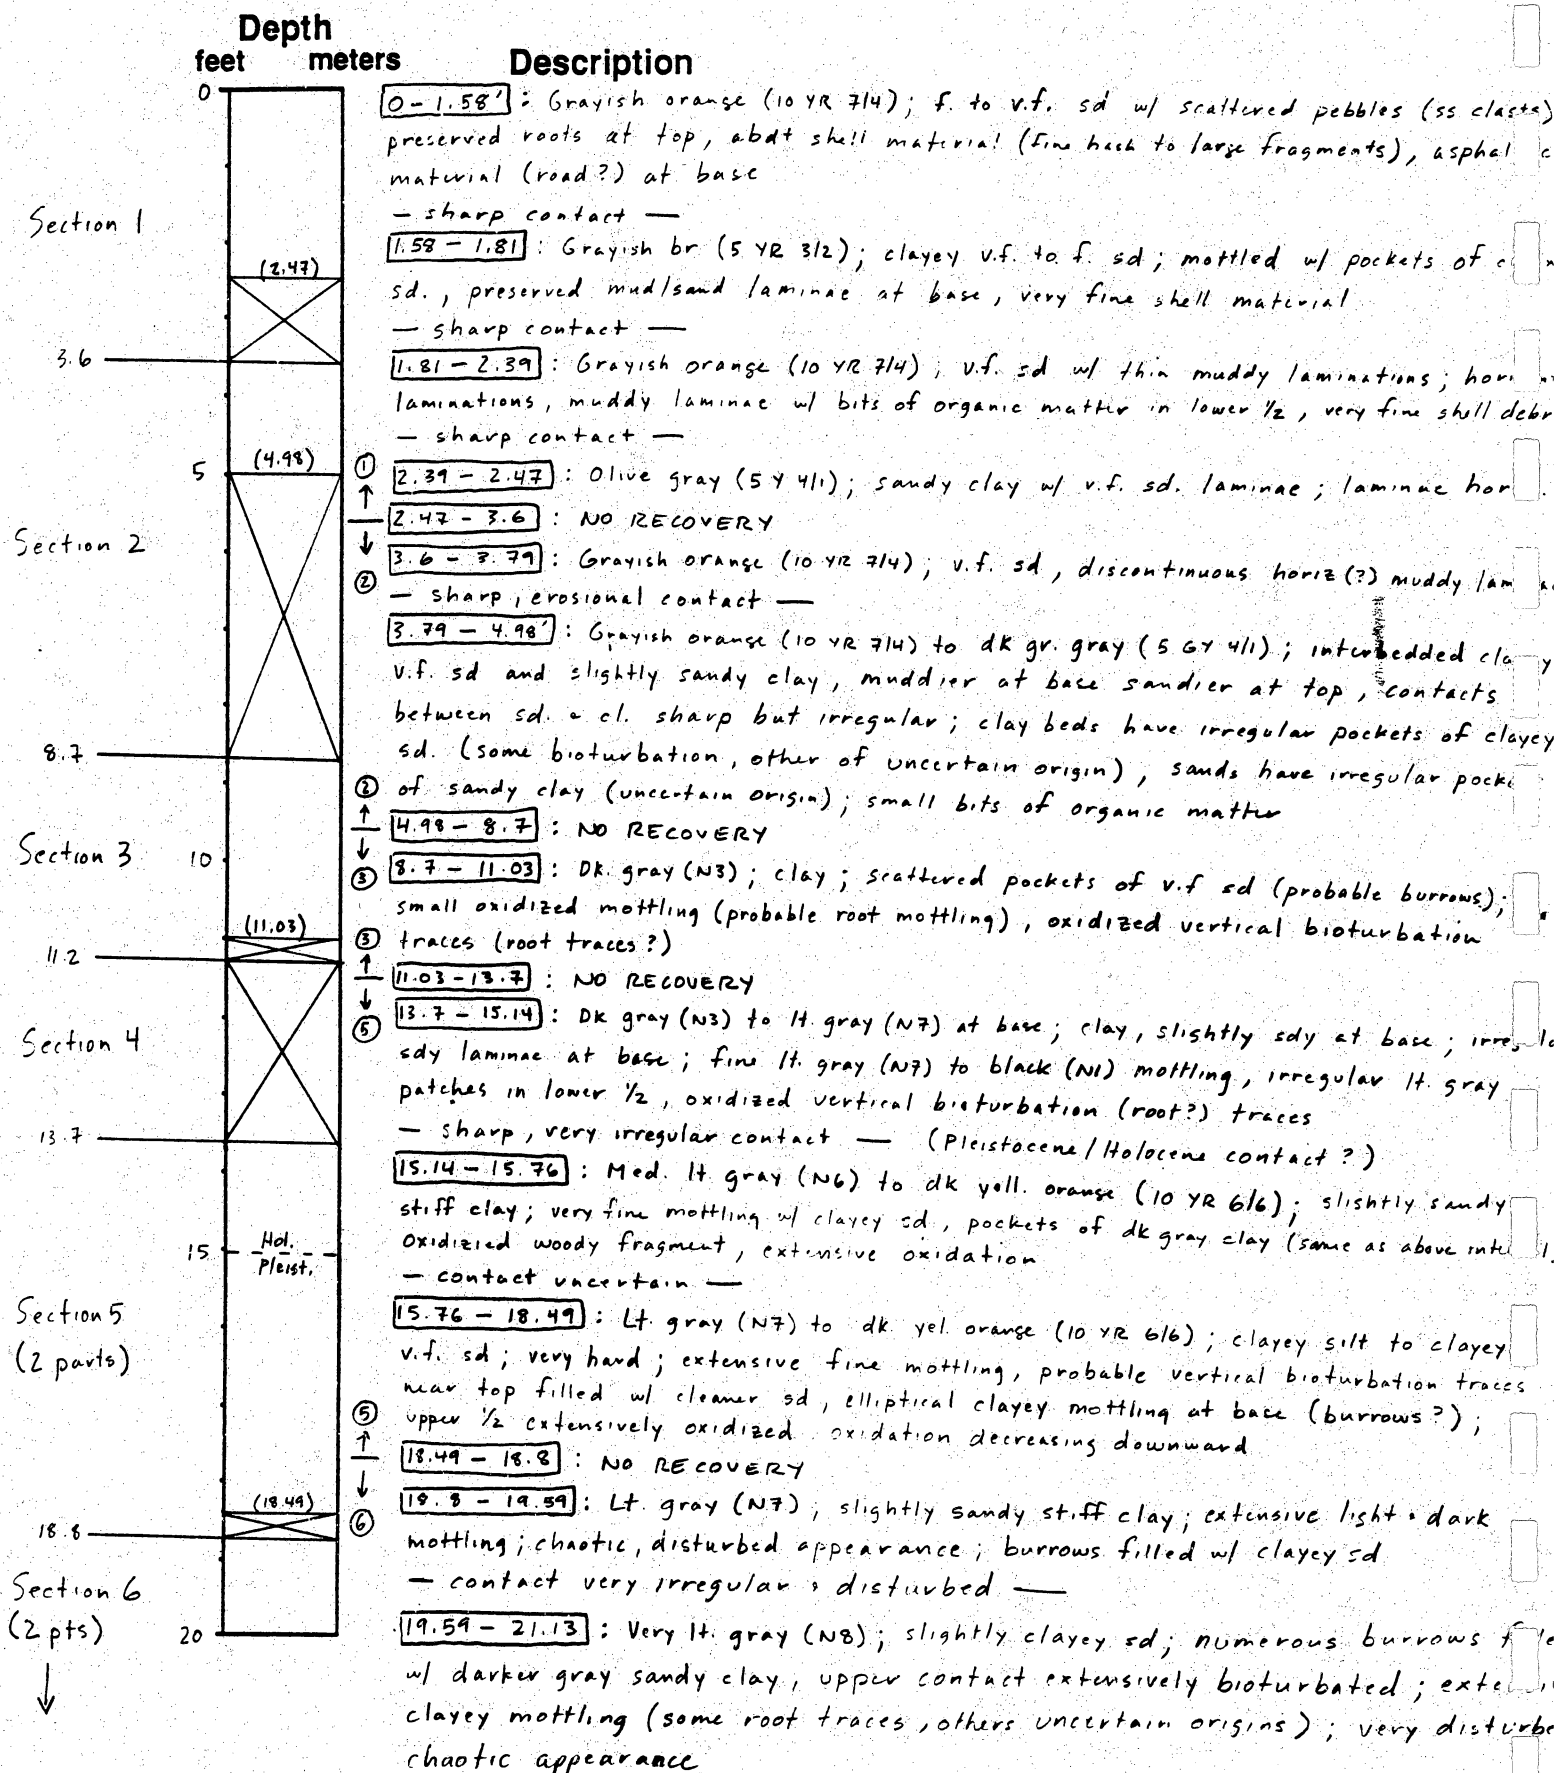 Depth
feet meters Description
0
0 - 1.58' : Grayish orange (10 YR 7/4); f. to v.f. sd w/ scattered pebbles (ss clasts)
preserved roots at top, abdt shell material (fine hash to large fragments), asphal
material (road?) at base
— sharp contact —
Section 1
1.58 - 1.81 : Grayish br (5 YR 3/2); clayey v.f. to f. sd; mottled w/ pockets of
(2.47)
sd., preserved mud/sand laminae at base, very fine shell material
— sharp contact —
3.6
1.81 - 2.39 : Grayish orange (10 YR 7/4); v.f. sd w/ thin muddy laminations;
laminations, muddy laminae w/ bits of organic matter in lower 1/2, very fine shell debr
— sharp contact —
5 (4.98) ①
2.39 - 2.47 : Olive gray (5 Y 4/1); sandy clay w/ v.f. sd. laminae; laminae hor
↑
2.47 - 3.6 : NO RECOVERY
↓
Section 2
3.6 - 3.79 : Grayish orange (10 YR 7/4); v.f. sd, discontinuous horiz(?) muddy lam
② — sharp, erosional contact —
3.79 - 4.98' : Grayish orange (10 YR 7/4) to dk gr. gray (5 GY 4/1); interbedded
v.f. sd and slightly sandy clay, muddier at base sandier at top, contacts
between sd. & cl. sharp but irregular; clay beds have irregular pockets of clayey
8.7
sd. (some bioturbation, other of uncertain origin), sands have irregular pocke
② of sandy clay (uncertain origin); small bits of organic matter
↑
4.98 - 8.7 : NO RECOVERY
↓
Section 3 10
③ 8.7 - 11.03 : Dk. gray (N3); clay; scattered pockets of v.f sd (probable burrows);
small oxidized mottling (probable root mottling), oxidized vertical bioturbation
(11.03) ③ traces (root traces?)
11.2
↑
11.03 - 13.7 : NO RECOVERY
↓
⑤ 13.7 - 15.14 : Dk gray (N3) to lt. gray (N7) at base; clay, slightly sdy at base;
Section 4
sdy laminae at base; fine lt. gray (N7) to black (N1) mottling, irregular lt. gray
patches in lower 1/2, oxidized vertical bioturbation (root?) traces
13.7
— sharp, very irregular contact — (Pleistocene/Holocene contact?)
15.14 - 15.76 : Med. lt gray (N6) to dk yell. orange (10 YR 6/6); slightly sandy
stiff clay; very fine mottling w/ clayey sd, pockets of dk gray clay (same as above
15 Hol.
Pleist.
oxidizied woody fragment, extensive oxidation
— contact uncertain —
Section 5
(2 parts)
15.76 - 18.49 : Lt. gray (N7) to dk. yel. orange (10 YR 6/6); clayey silt to clayey
v.f. sd; very hard; extensive fine mottling, probable vertical bioturbation traces
near top filled w/ cleaner sd, elliptical clayey mottling at base (burrows?);
⑤ upper 1/2 extensively oxidized oxidation decreasing downward
↑
18.49 - 18.8 : NO RECOVERY
↓
(18.49)
⑥ 18.8 - 19.59 : Lt. gray (N7); slightly sandy stiff clay; extensive light & dark
18.8
mottling; chaotic, disturbed appearance; burrows filled w/ clayey sd
— contact very irregular & disturbed —
Section 6
(2 pts)
↓
20
19.59 - 21.13 : Very lt. gray (N8); slightly clayey sd; numerous burrows
w/ darker gray sandy clay, upper contact extensively bioturbated;
clayey mottling (some root traces, others uncertain origins); very disturbe
chaotic appearance